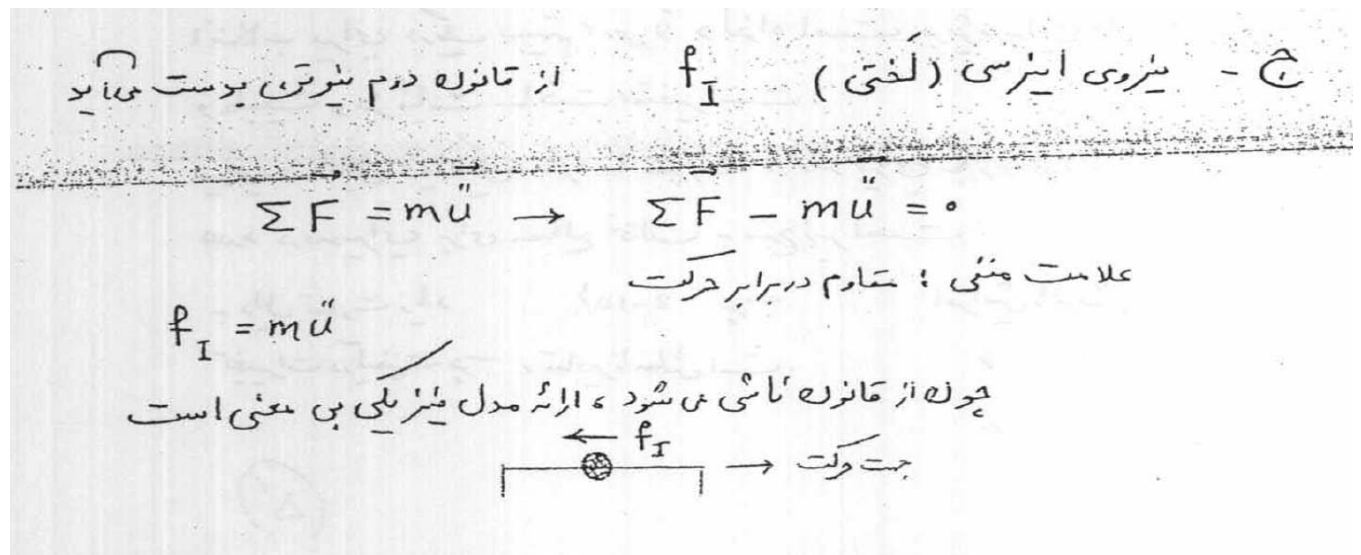 ج - نیروی اینرسی (لَختی) f_I از قانون دوم نیوتن بدست می‌آید
ΣF⃗ = mü⃗ → ΣF⃗ - mü⃗ = ۰
علامت منفی : مقاوم در برابر حرکت
f_I = mü
چون از قانون ناشی می شود ، ارائه مدل فیزیکی بی معنی است
← f_I
→ جهت حرکت